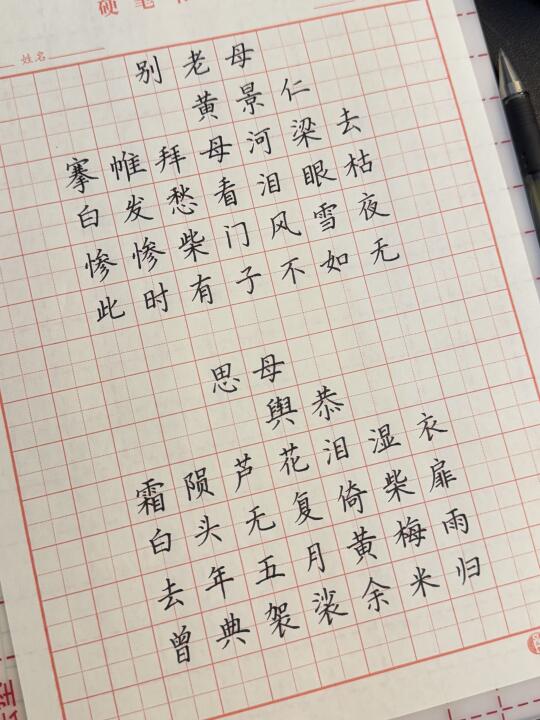 硬笔
姓名
别老母
黄景仁
搴帷拜母河梁去
白发愁看泪眼枯
惨惨柴门风雪夜
此时有子不如无
思母
舆恭
霜陨芦花泪湿衣
白头无复倚柴扉
去年五月黄梅雨
曾典袈裟余米归